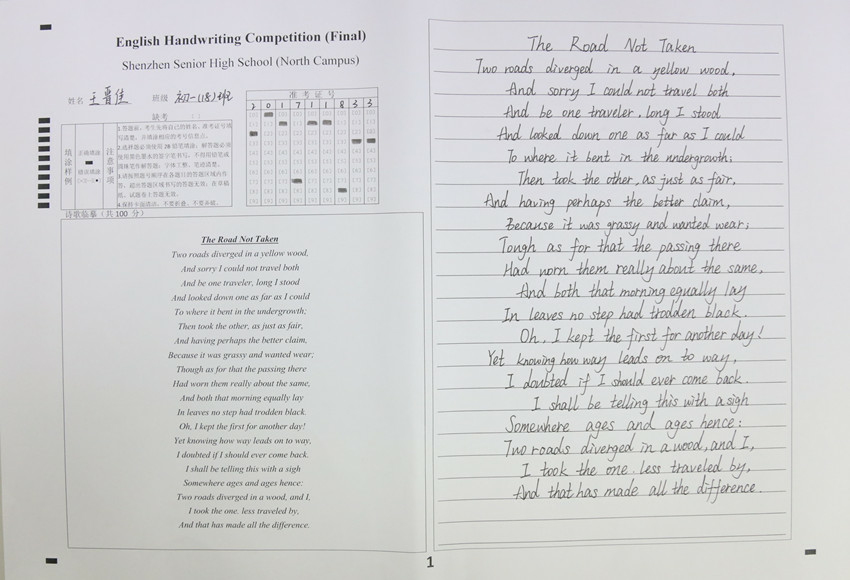 English Handwriting Competition (Final)
Shenzhen Senior High School (North Campus)
姓名 王晋佳 班级 初一(18)班
准考证号
2 0 1 7 1 1 8 3 3
缺考 ( )
填涂样例
正确填涂
错误填涂
注意事项
诗歌临摹（共100 分）
The Road Not Taken
Two roads diverged in a yellow wood,
And sorry I could not travel both
And be one traveler, long I stood
And looked down one as far as I could
To where it bent in the undergrowth;
Then took the other, as just as fair,
And having perhaps the better claim,
Because it was grassy and wanted wear;
Though as for that the passing there
Had worn them really about the same,
And both that morning equally lay
In leaves no step had trodden black.
Oh, I kept the first for another day!
Yet knowing how way leads on to way,
I doubted if I should ever come back.
I shall be telling this with a sigh
Somewhere ages and ages hence:
Two roads diverged in a wood, and I,
I took the one. less traveled by,
And that has made all the difference.
The Road Not Taken
Two roads diverged in a yellow wood,
And sorry I could not travel both
And be one traveler, long I stood
And looked down one as far as I could
To where it bent in the undergrowth;
Then took the other, as just as fair,
And having perhaps the better claim,
Because it was grassy and wanted wear;
Tough as for that the passing there
Had worn them really about the same,
And both that morning equally lay
In leaves no step had trodden black.
Oh, I kept the first for another day!
Yet knowing how way leads on to way,
I doubted if I should ever come back.
I shall be telling this with a sigh
Somewhere ages and ages hence:
Two roads diverged in a wood, and I,
I took the one. less traveled by,
And that has made all the difference.
1